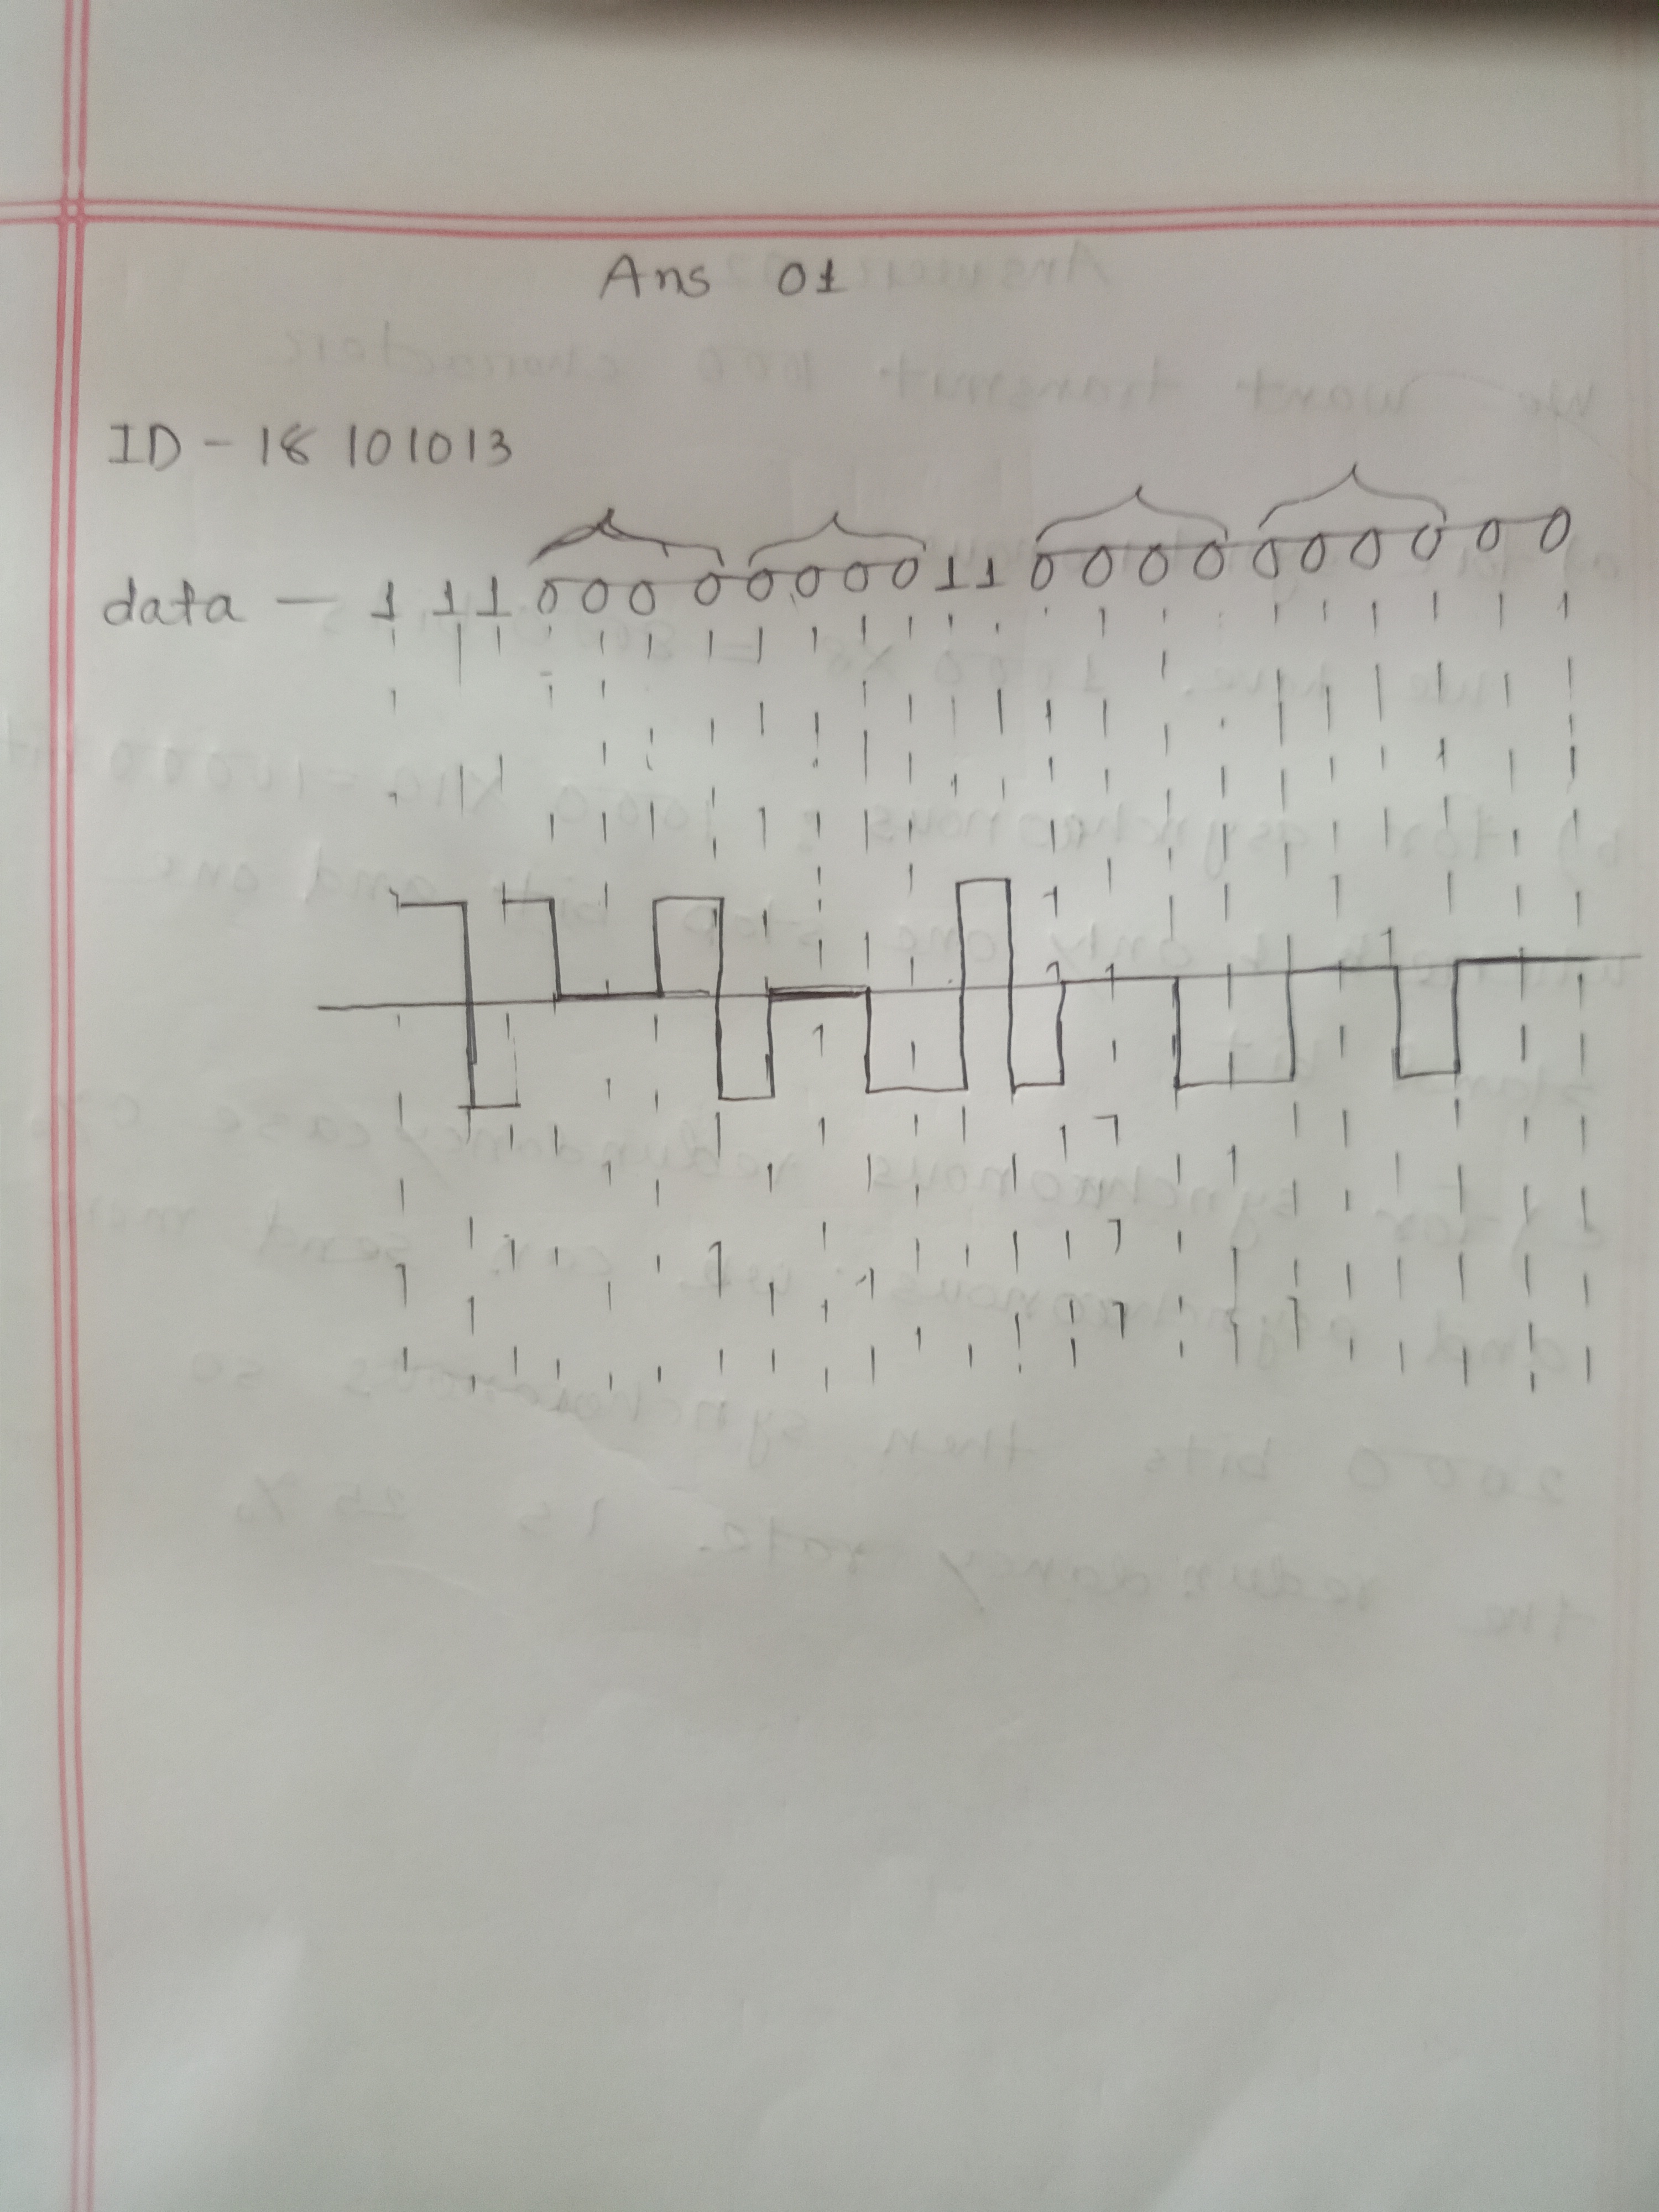 Ans 01
ID - 18101013
data — 1 1 1 0 0 0 0 0 0 0 0 1 1 0 0 0 0 0 0 0 0 0 0